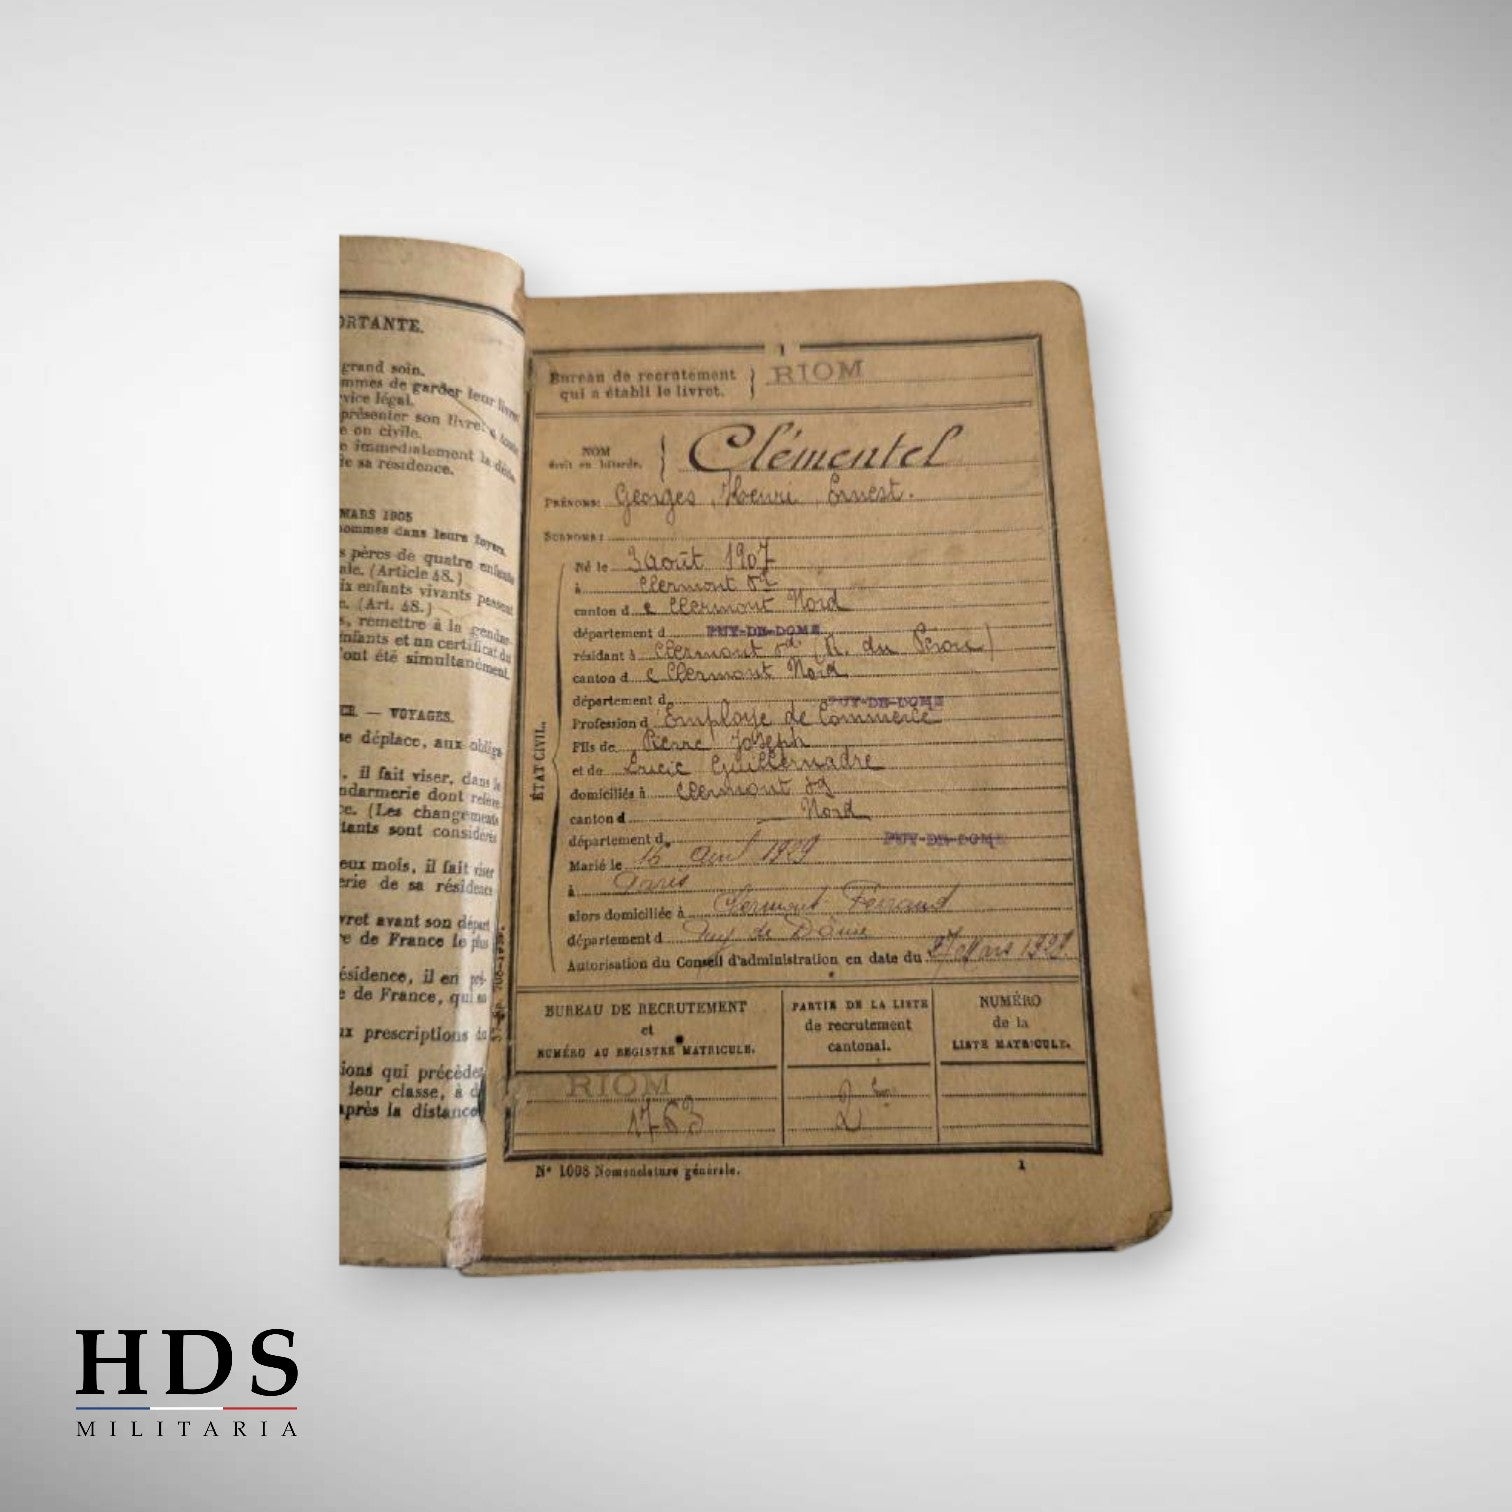 ORTANTE.
grand soin.
mmes de garder leur livret
vice légal.
présenter son livret à toute
e ou civile.
e immédiatement la décla
de sa résidence.
MARS 1905
hommes dans leurs foyers.
s pères de quatre enfants
ale. (Article 48.)
ix enfants vivants passent
e. (Art. 48.)
s, remettre à la gendar-
enfants et un certificat du
'ont été simultanément.
CE. — VOYAGES.
se déplace, aux obliga
, il fait viser, dans le
ndarmerie dont relève
ce. (Les changements
tants sont considérés
eux mois, il fait viser
erie de sa résidence
vret avant son départ
re de France le plus
ésidence, il en pré-
e de France, qui sa
ux prescriptions du
ions qui précèdent
leur classe, à d
après la distance
1
Bureau de recrutement
qui a établi le livret. } RIOM
NOM
écrit en bâtarde. } Clémentel
PRÉNOMS: Georges, Henri, Ernest.
SURNOMS:
ÉTAT CIVIL.
Né le 3 août 1907
à Clermont Fd
canton de Clermont Nord
département d PUY-DE-DOME
résidant à Clermont Fd (R. du
canton de Clermont Nord
département d PUY-DE-DOME
Profession d Employé de Commerce
Fils de Pierre Joseph
et de Lucie Guillemadre
domiciliés à Clermont Fd
canton d — Nord
département d PUY-DE-DOME
Marié le 16 avril 1929
à Paris
alors domiciliée à Clermont Ferrand
département d Puy de Dôme
Autorisation du Conseil d'administration en date du 27 Mars 1929
BUREAU DE RECRUTEMENT
et
NUMÉRO AU REGISTRE MATRICULE.
PARTIE DE LA LISTE
de recrutement
cantonal.
NUMÉRO
de la
LISTE MATRICULE.
RIOM
1763
2e
N° 1008 Nomenclature générale.
1
HDS
MILITARIA